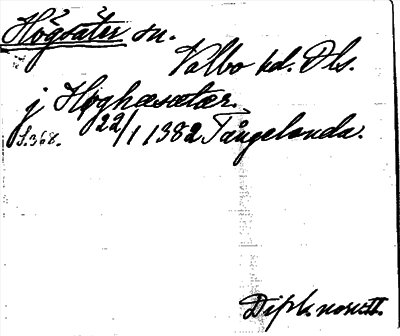 Högsäter sn.
Valbo hd. Dls.
j Høghæsætær.
S. 368. 22/1 1382 Tångelanda.
Dipl. norv. II.